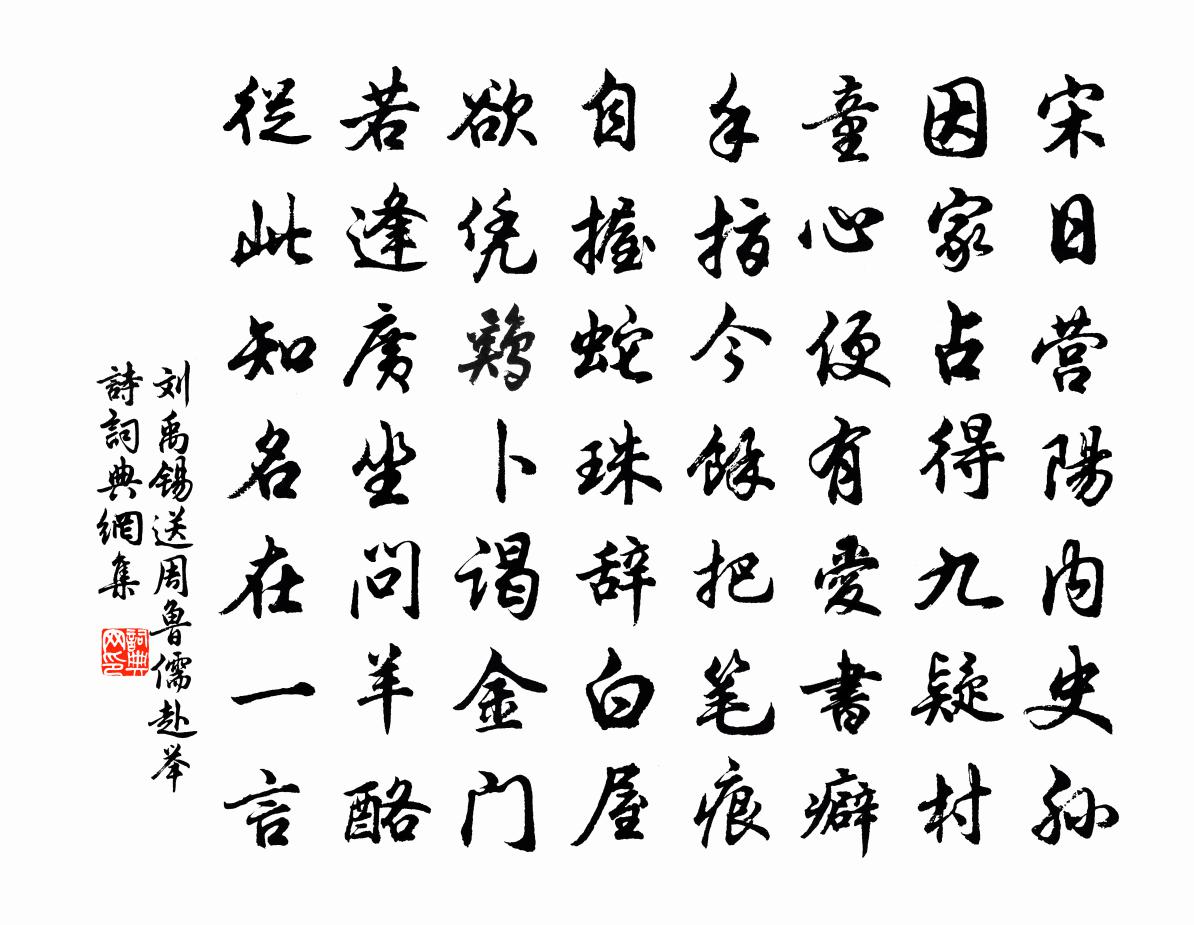 宋日营陽内史孙
因家占得九疑村
童心便有愛書癖
手指今餘把笔痕
自握蛇珠辞白屋
欲凭鷄卜谒金门
若逢廣坐问羊酪
從此知名在一言
刘禹锡送周魯儒赴举
詩詞典網集
詞典网印